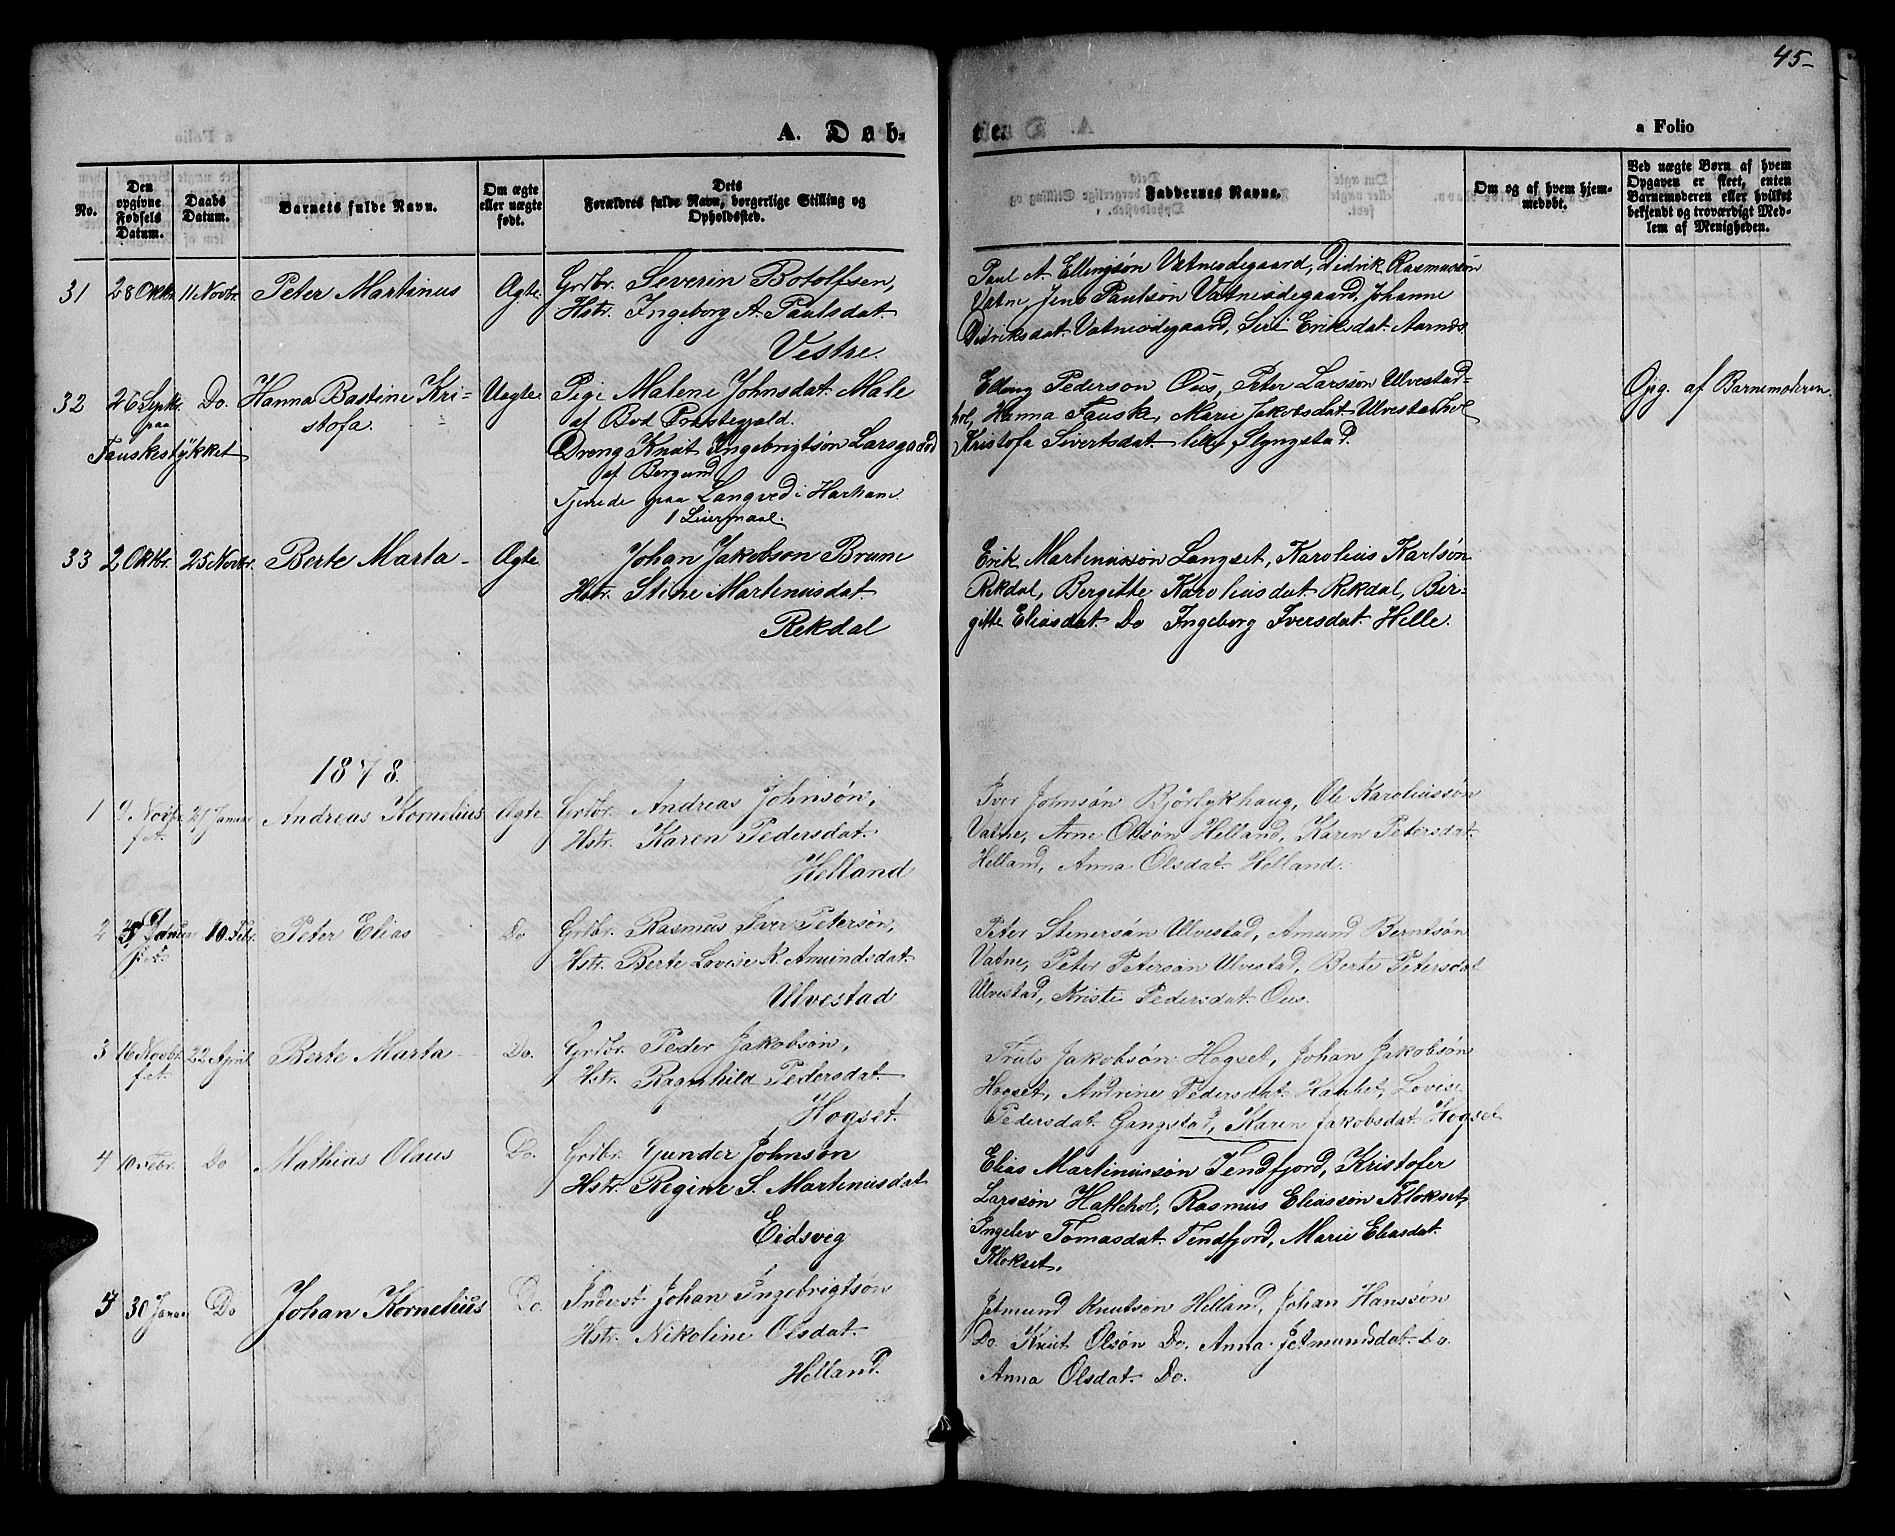 45-
A. Daab-
te.
a Folio
No.
Den opgivne Fødsels Datum.
Daabs Datum.
Barnets fulde Navn.
Om ægte eller uægte født.
Dets Forældres fulde Navn, borgerlige Stilling og Opholdssted.
Faddernes Navne.
Om og af hvem hjemmedøbt.
Ved uægte Børn af hvem Opgaven er skeet, enten Barnemoderen eller hvilket bekjendt og troværdigt Medlem af Menigheden.
31 28 Oktbr. 11 Novbr. Peter Martinus Ægte Grdbr. Severin Botolfsen,
Hstr. Ingeborg A. Paulsdat.
Vestre.
Paul A. Ellingsøn Vatneødegaard, Didrik Rasmussøn
Vatne, Jens Paulsøn Vatneødegaard, Johanne
Didriksdat. Vatneødegaard, Siri Eriksdat. Aarnds
32 26 Septbr. Do. Hanna Bastine Kri- Uægte Pige Malene Johnsdat. Male
paa stofa. af Bod Præstegjæld.
Fauskestykket Dreng Knut Ingebrigtsøn Larsgaard
af Borgund
Tjenede paa Langved i Harham.
1 Leiermaal.
Elling Pederson Ous, Peter Larssøn Ulvestad-
hol, Hanna Fausk, Marie Jakobsdat. Ulvestadhol
Kristofa Sivertsdat. Slyngstad.
Opg. af Barnemoderen.
33 2 Oktbr. 25 Novbr. Berte Marta Ægte Johan Jakobson Brune
Hstr. Stine Martinusdat.
Rekdal
Erik Martinussøn Langset, Karolius Karlsøn
Rekdal, Bergitte Karoliusdat. Rekdal, Bir-
gitte Eliasdat. Do Ingeborg Iversdat. Helle.
1878.
1 9 Novbr. 21 Januar Andreas Kornelius Ægte Grdbr. Andreas Johnsøn,
f.A. Hstr. Karen Pedersdat.
Helland
Iver Johnsøn Bjørlykhaug, Ole Karoliussøn
Vatne, Arne Olsøn Helland, Karen Petersdat.
Helland, Anna Olsdat. Helland.
2 10 Febr. Peter Elias Do Grdbr. Rasmus Iver Petersøn,
Hstr. Berte Lovise R. Amundsdat.
Ulvestad
Peter Stenersøn Ulvestad, Amund Berntsøn
Vatne, Peter Petersøn Ulvestad, Berte Petersdat
Ulvestad, Kristi Pedersdat. Ous.
3 16 Novbr. 22 April Berte Marta Do. Grdbr. Peder Jakobsøn,
f.A. Hstr. Ragnhild Pedersdat.
Hogset.
Truls Jakobsøn Hogset, Johan Jakobsøn
Hogset, Andrine Pedersdat. Lovise
Pedersdat. Gangstad, Karen Jakobsdat. Hogset
4 10 Febr. Do Mathias Olaus Do. Grdbr. Gunder Johnsøn
Hstr. Regine S. Martinusdat
Eidsvig
Elias Martinussøn Tendfjord, Kristofer
Larssøn Hattehol, Rasmus Eliassøn Klokset,
Ingelev Tomasdat. Tendfjord, Marie Eliasdat.
Klokset.
5 30 Januar Do Johan Kornelius Do. Inderst Johan Ingebrigtsøn
Hstr. Nikoline Olsdat.
Helland.
Jetmund Knutsøn Helland, Johan Hanssøn
Do. Knut Olsøn Do. Anna Jetmundsdat. Do.
Anna Olsdat. Do.